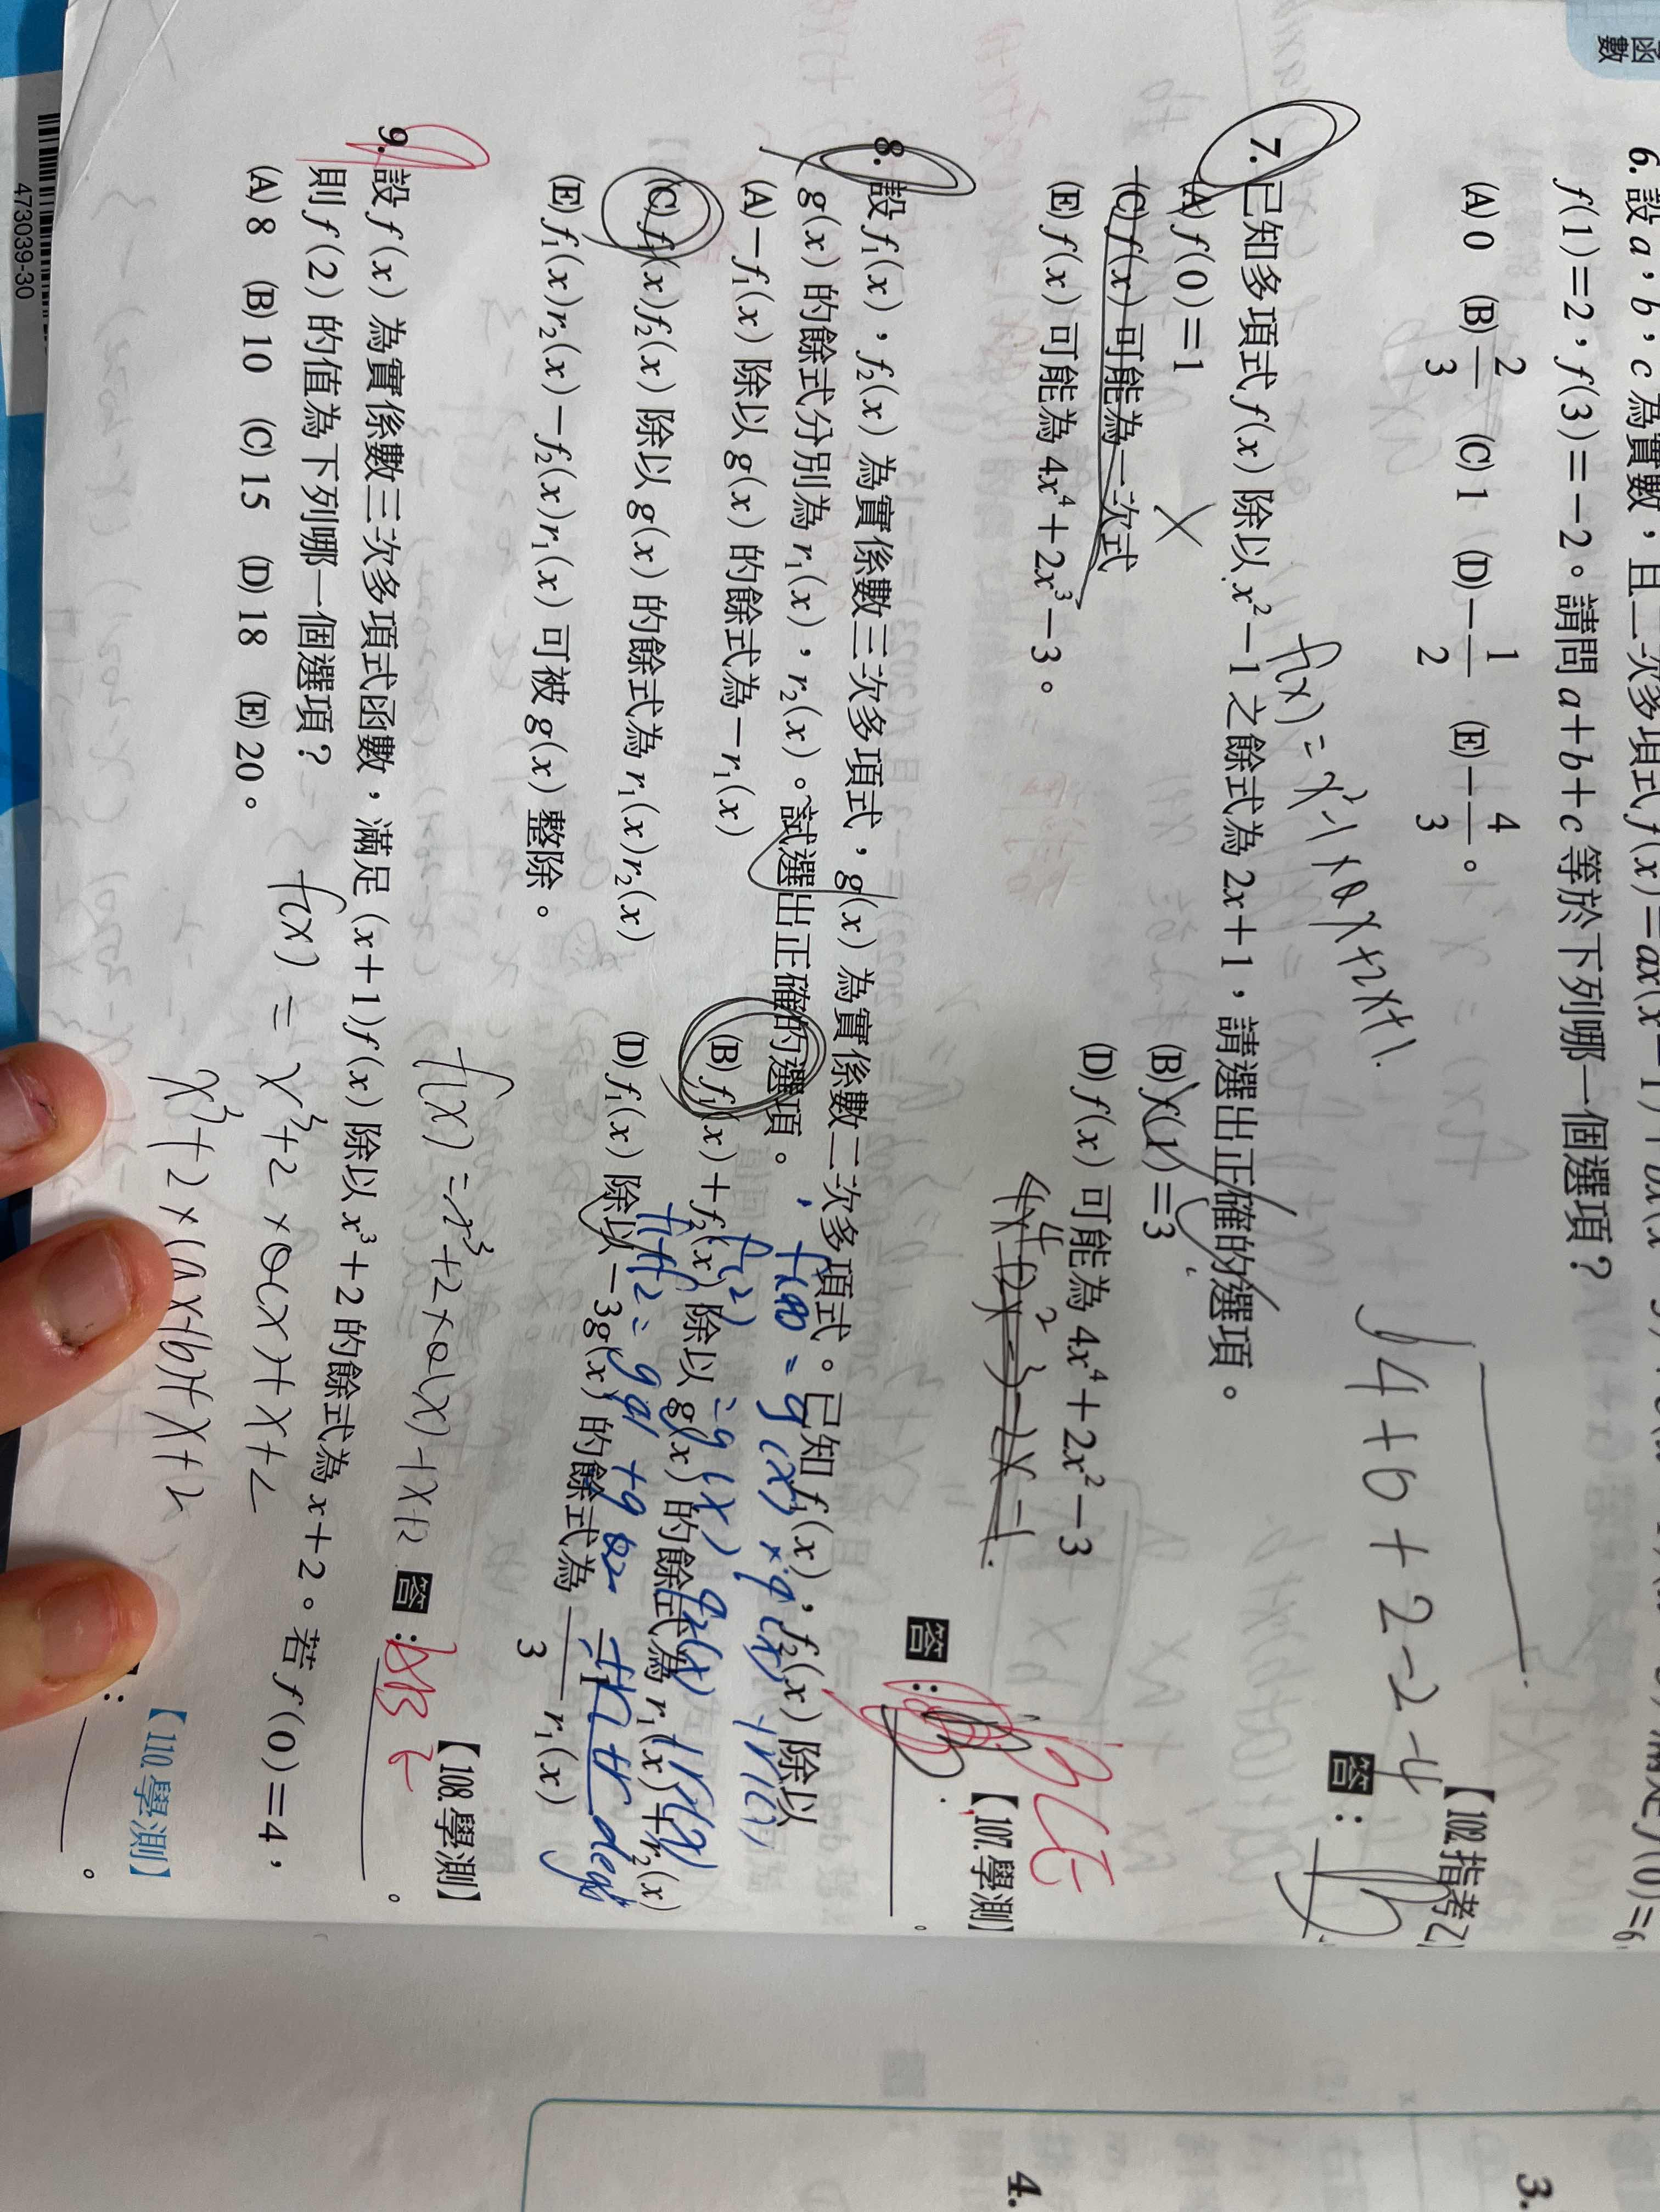 函
數
6. 設 a，b，c 為實數，且二次多項式 f(x)=ax(x-1)+bx(x
f(1)=2，f(3)=-2。請問 a+b+c 等於下列哪一個選項？
(A) 0 (B) 2/3 (C) 1 (D) -1/2 (E) -4/3。
【102.指考乙】
答：
4+6+2-2-4
f(x)=x²-1×Qx+2x+1
7. 已知多項式 f(x) 除以 x²-1 之餘式為 2x+1，請選出正確的選項。
(A) f(0)=1
(B) f(1)=3
(C) f(x) 可能為一次式
(D) f(x) 可能為 4x⁴+2x²-3
(E) f(x) 可能為 4x⁴+2x³-3。
【107.學測】
BCE
答：
8. 設 f₁(x)，f₂(x) 為實係數三次多項式，g(x) 為實係數二次多項式。已知 f₁(x)，f₂(x) 除以
g(x) 的餘式分別為 r₁(x)，r₂(x)。試選出正確的選項。
(A) -f₁(x) 除以 g(x) 的餘式為 -r₁(x)
(B) f₁(x)+f₂(x) 除以 g(x) 的餘式為 r₁(x)+r₂(x)
(C) f₁(x)f₂(x) 除以 g(x) 的餘式為 r₁(x)r₂(x)
(D) f₁(x) 除以 -3g(x) 的餘式為 -1/3 r₁(x)
(E) f₁(x)r₂(x)-f₂(x)r₁(x) 可被 g(x) 整除。
【108.學測】
f(x)=x³+2×Q(x)+x+2
答：
9. 設 f(x) 為實係數三次多項式函數，滿足 (x+1)f(x) 除以 x³+2 的餘式為 x+2。若 f(0)=4，
則 f(2) 的值為下列哪一個選項？
(A) 8 (B) 10 (C) 15 (D) 18 (E) 20。
f(x)=x³+2×Q(x)+x+2
x³+2×(ax+b)+x+2
【110.學測】
3.
4.
473039-30